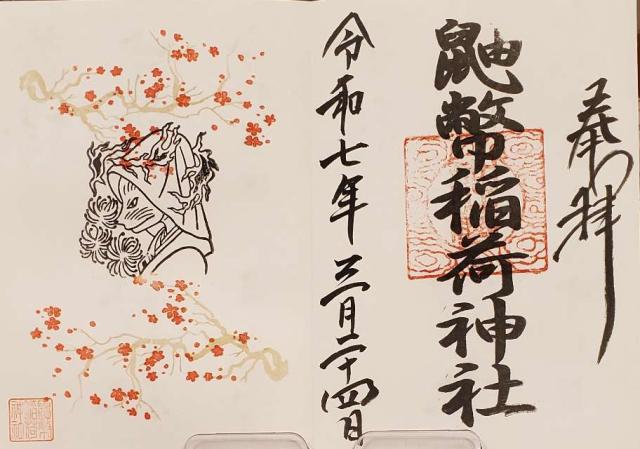 奉拝
鼬幣稲荷神社
令和七年三月二十四日